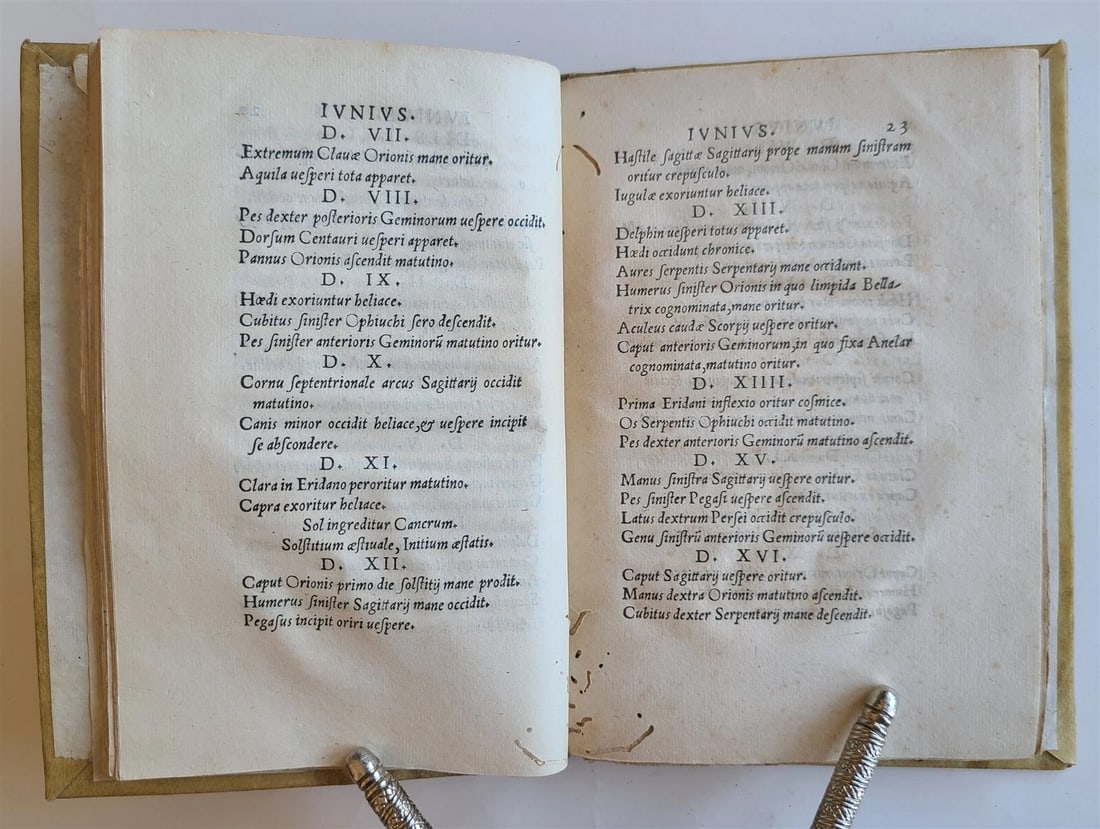 IVNIVS.
D. VII.
Extremum Clauæ Orionis mane oritur.
Aquila ueſperi tota apparet.
D. VIII.
Pes dexter poſterioris Geminorum ueſpere occidit.
Dorſum Centauri ueſperi apparet.
Pannus Orionis aſcendit matutino.
D. IX.
Hœdi exoriuntur heliace.
Cubitus ſiniſter Ophiuchi ſero deſcendit.
Pes ſiniſter anterioris Geminorū matutino oritur.
D. X.
Cornu ſeptentrionale arcus Sagittarij occidit
matutino.
Canis minor occidit heliace,& ueſpere incipit
ſe abſcondere.
D. XI.
Clara in Eridano peroritur matutino.
Capra exoritur heliace.
Sol ingreditur Cancrum.
Solſtitium æſtiuale, Initium æſtatis.
D. XII.
Caput Orionis primo die ſolſtitij mane prodit.
Humerus ſiniſter Sagittarij mane occidit.
Pegaſus incipit oriri ueſpere.
IVNIVS. 23
Haſtile ſagittæ Sagittarij prope manum ſiniſtram
oritur crepuſculo.
Iugulæ exoriuntur heliace.
D. XIII.
Delphin ueſperi totus apparet.
Hœdi occidunt chronice.
Aures ſerpentis Serpentarij mane occidunt.
Humerus ſiniſter Orionis in quo limpida Bella-
trix cognominata,mane oritur.
Aculeus caudæ Scorpij ueſpere oritur.
Caput anterioris Geminorum,in quo fixa Anelar
cognominata,matutino oritur.
D. XIIII.
Prima Eridani inflexio oritur coſmice.
Os Serpentis Ophiuchi occidit matutino.
Pes dexter anterioris Geminorū matutino aſcendit.
D. XV.
Manus ſiniſtra Sagittarij ueſpere oritur.
Pes ſiniſter Pegaſi ueſpere aſcendit.
Latus dextrum Perſei occidit crepuſculo.
Genu ſiniſtrū anterioris Geminorū ueſpere occidit.
D. XVI.
Caput Sagittarij ueſpere oritur.
Manus dextra Orionis matutino aſcendit.
Cubitus dexter Serpentarij mane deſcendit.